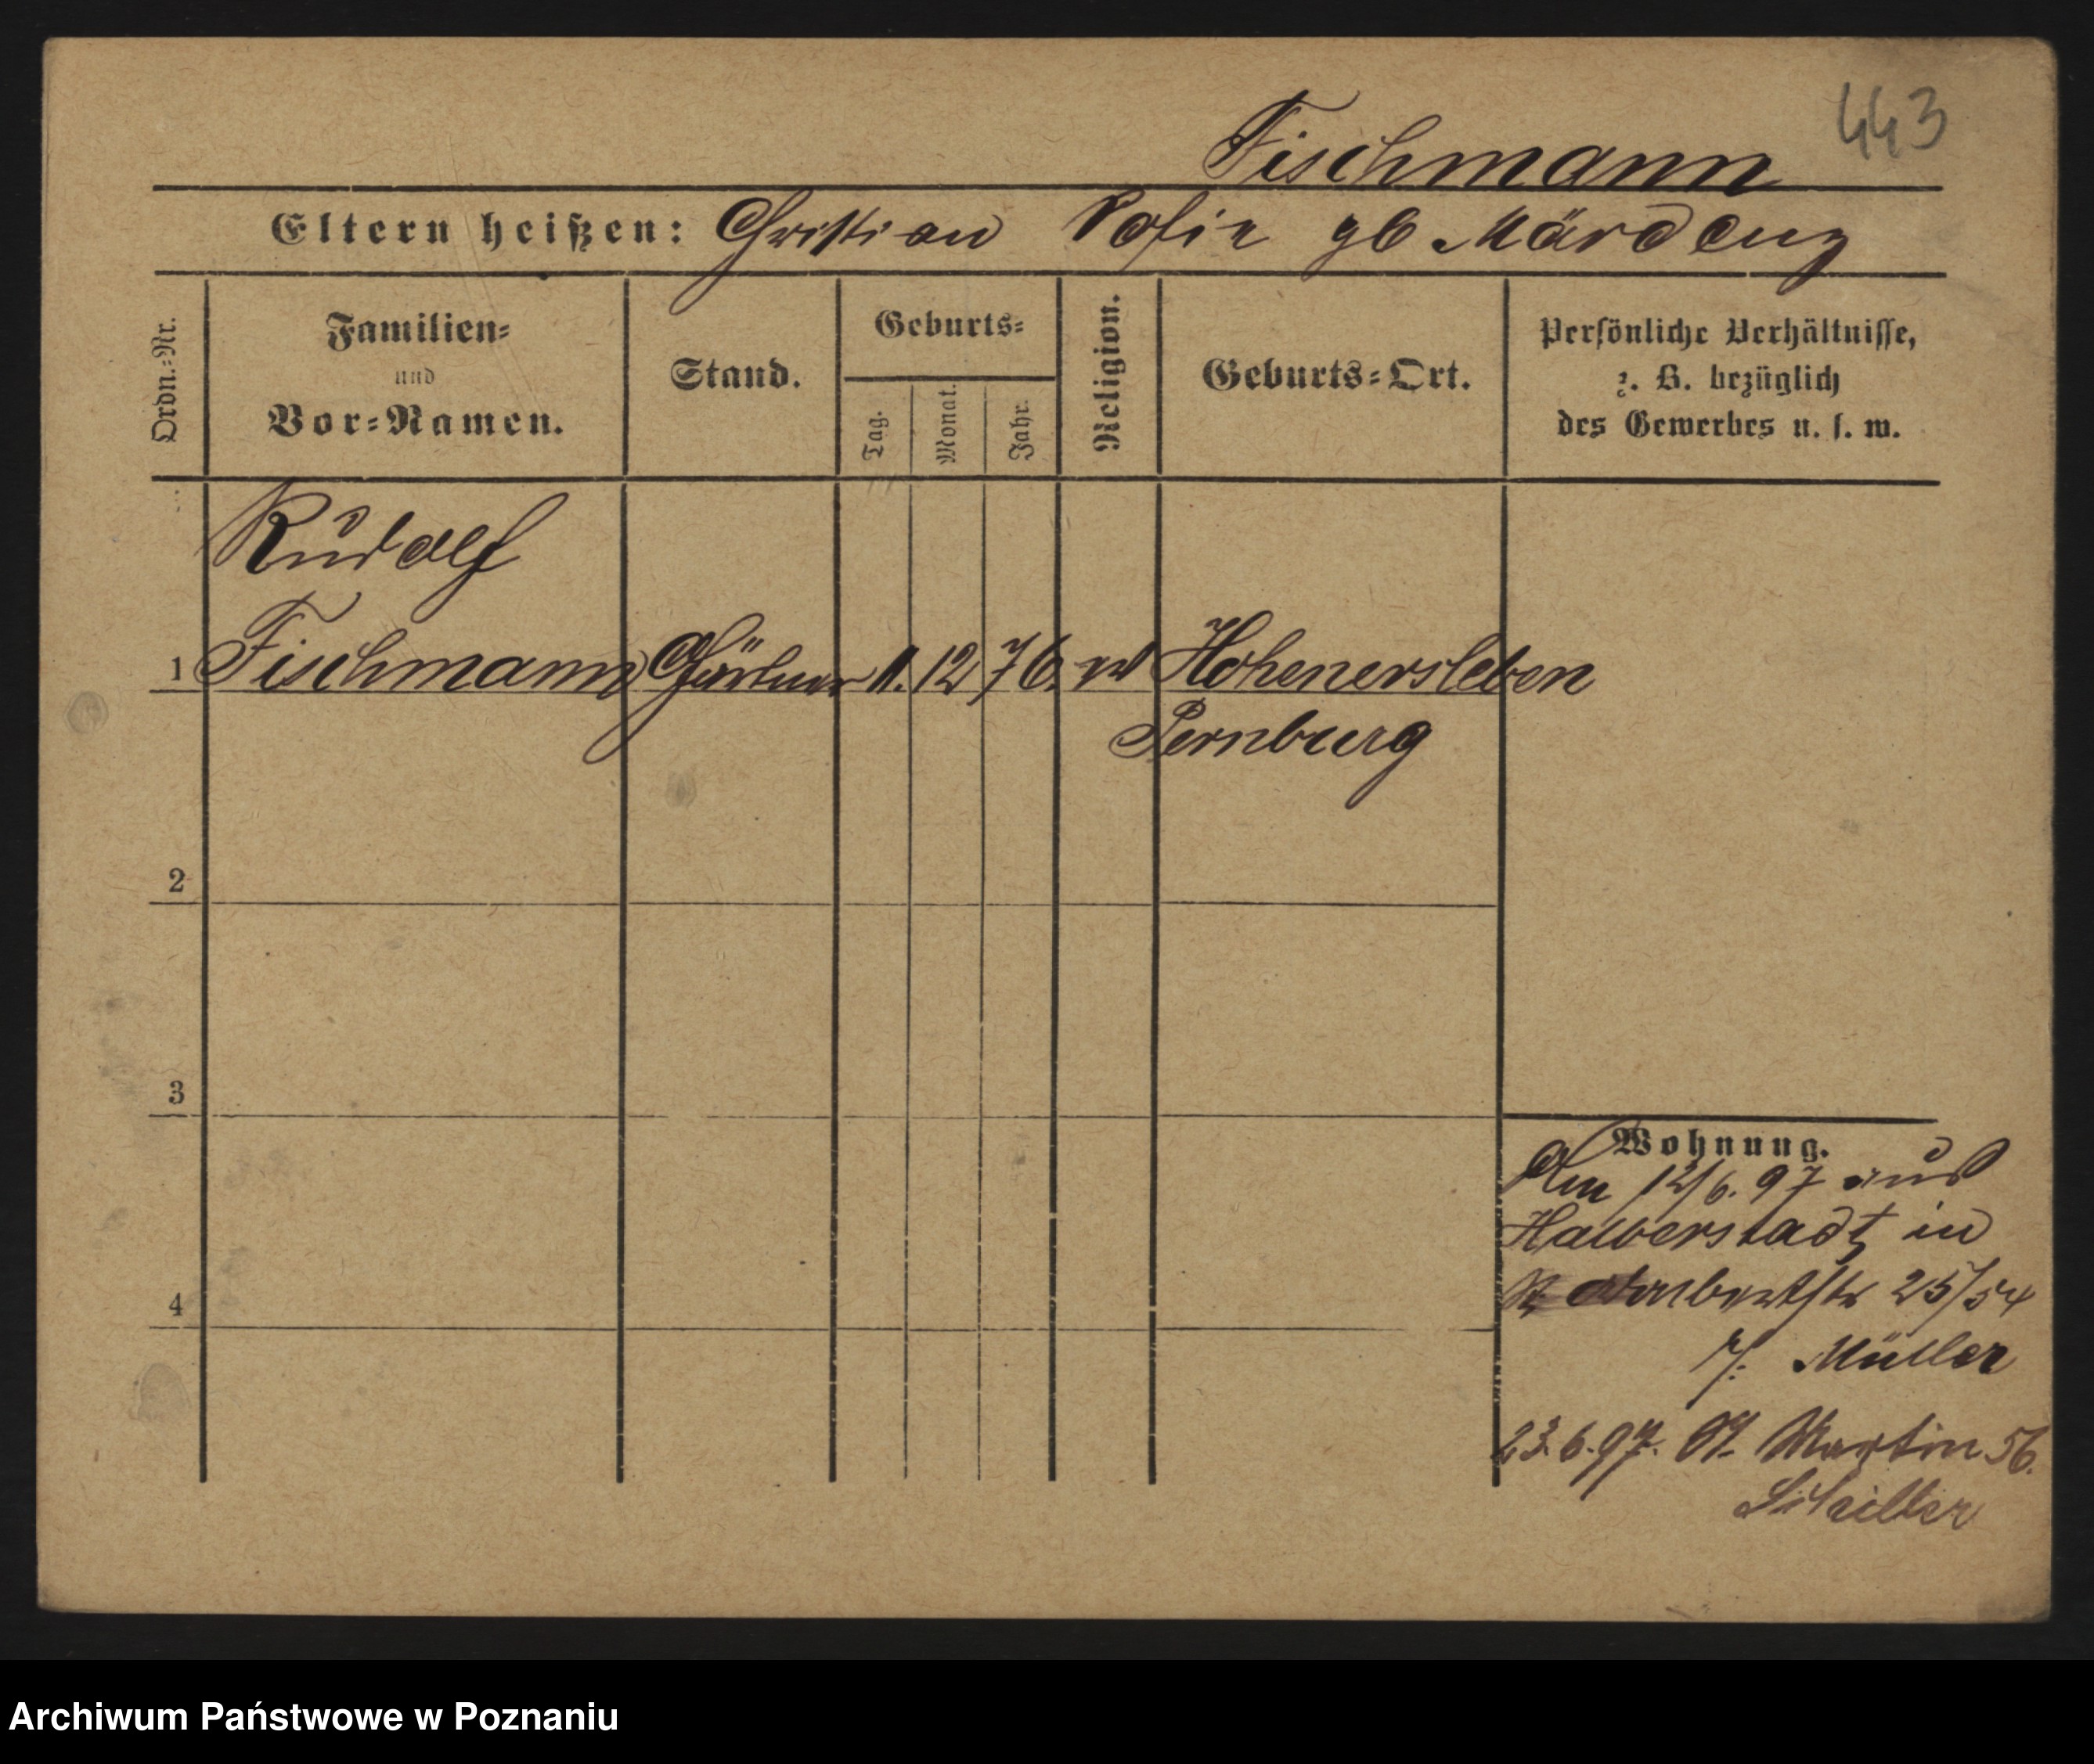 443
Fischmann
Eltern heißen: Christian Sofie gb Märdeny
Ordn.=Nr.
Familien=
und
Vor=Namen.
Stand.
Geburts=
Tag.
Monat.
Jahr.
Religion.
Geburts=Ort.
Persönliche Verhältnisse,
z. B. bezüglich
des Gewerbes u. s. w.
Rudolf
1 Fischmann Gärtner 11. 12 76. ev Hohenersleben
Pernburg
2
3
4
Wohnung.
Am 12/6. 97 aus
Halberstadt in
25/54
Müller
23.6.97. St. Martin 56.
Archiwum Państwowe w Poznaniu